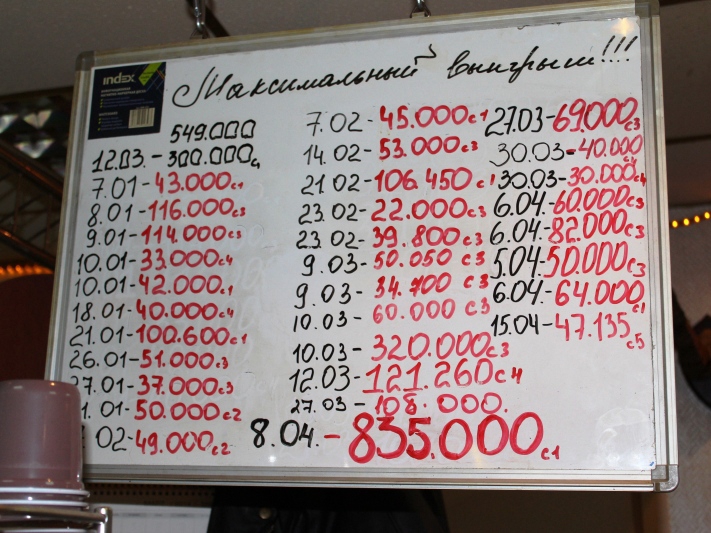 index
Максимальный выигрыш!!!
549.000
12.03.-300.000с4
7.01-43.000с1
8.01-116.000с3
9.01-114.000с3
10.01-33.000с4
10.01-42.000с1
18.01-40.000с4
21.01-100.600с1
26.01-51.000с3
27.01-37.000с3
1.01-50.000с2
02-49.000с2
7.02-45.000с1
14.02-53.000с3
21.02-106.450с1
23.02-22.000с3
23.02-39.800с3
9.03-50.050с3
9.03-34.700с3
10.03-60.000с3
10.03-320.000с3
12.03-121.260с4
27.03-108.000.
8.04.-835.000с1
27.03-69.000с3
30.03-40.000с4
30.03-30.000с4
6.04.-60.000с3
6.04.-82.000с3
5.04-50.000с3
6.04-64.000с1
15.04-47.135с5